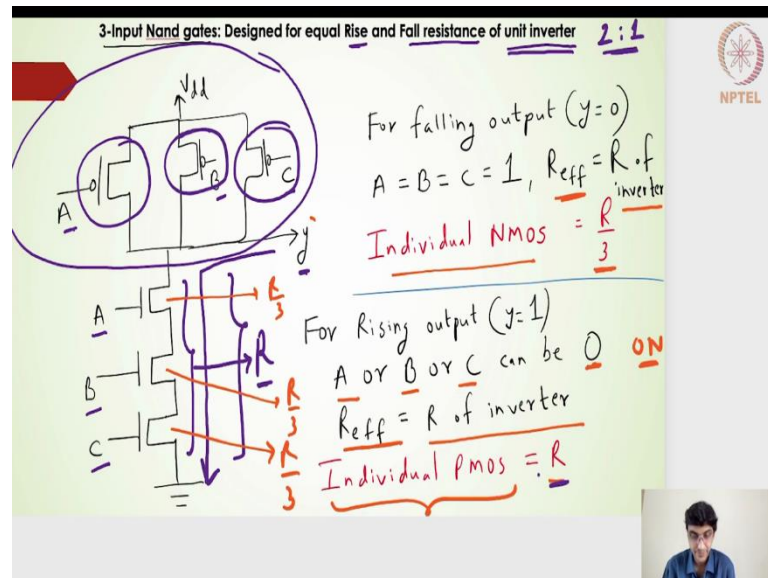 3-Input Nand gates: Designed for equal Rise and Fall resistance of unit inverter 2:1
NPTEL
Vdd
A
B
C
y
A
B
C
R/3
R
R/3
R/3
For falling output (y=0)
A = B = C = 1, Reff = R of inverter
Individual NMOS = R/3
For Rising output (y=1)
A or B or C can be 0 ON
Reff = R of inverter
Individual PMOS = R